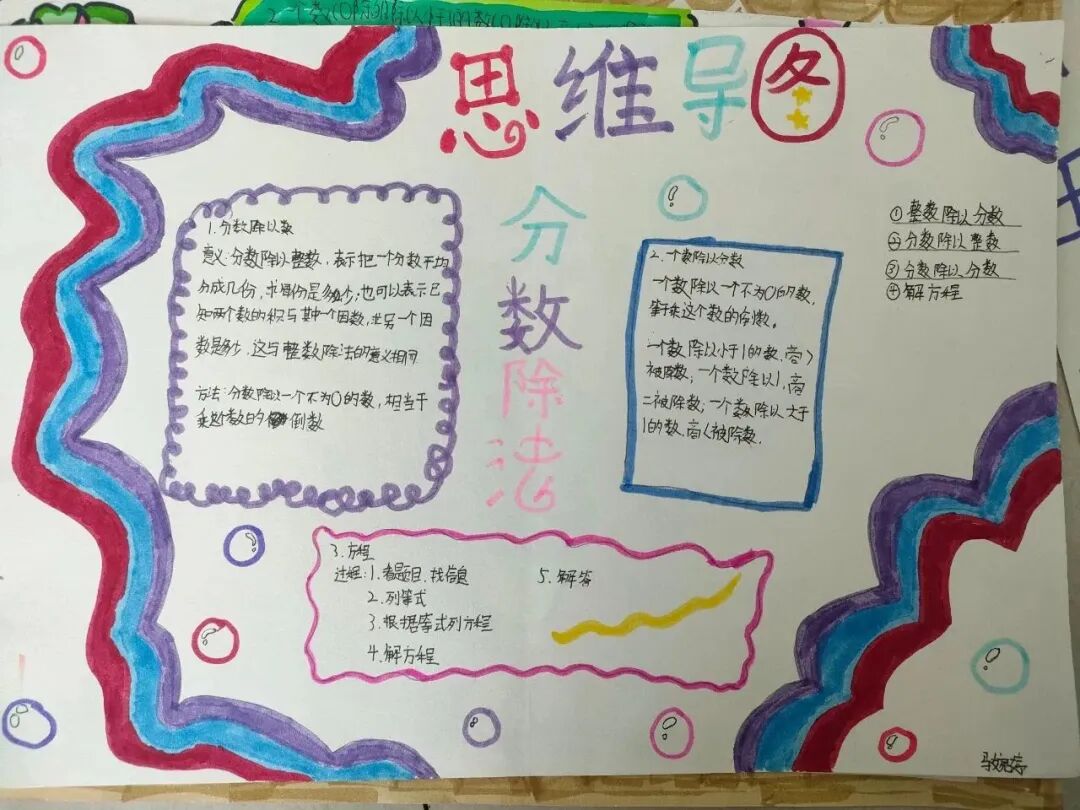 2.一个数(0除外)除以小于1的数(0除外)
思维导图
分数除法
1.分数除以数
意义:分数除以整数,表示把一个分数平均
分成几份,求每份是多少;也可以表示已
知两个数的积与其中一个因数,求另一个因
数是多少,这与整数除法的意义相同
方法:分数除以一个不为0的数,相当于
乘这个数的倒数
2.一个数除以分数
一个数除以一个不为0的数,
等于乘这个数的倒数。
一个数除以小于1的数,商>
被除数;一个数除以1,商
=被除数;一个数除以大于
1的数,商<被除数.
①整数除以分数
②分数除以整数
③分数除以分数
④解方程
3.方程
过程:1.看题目、找信息
2.列等式
3.根据等式列方程
4.解方程
5.解答